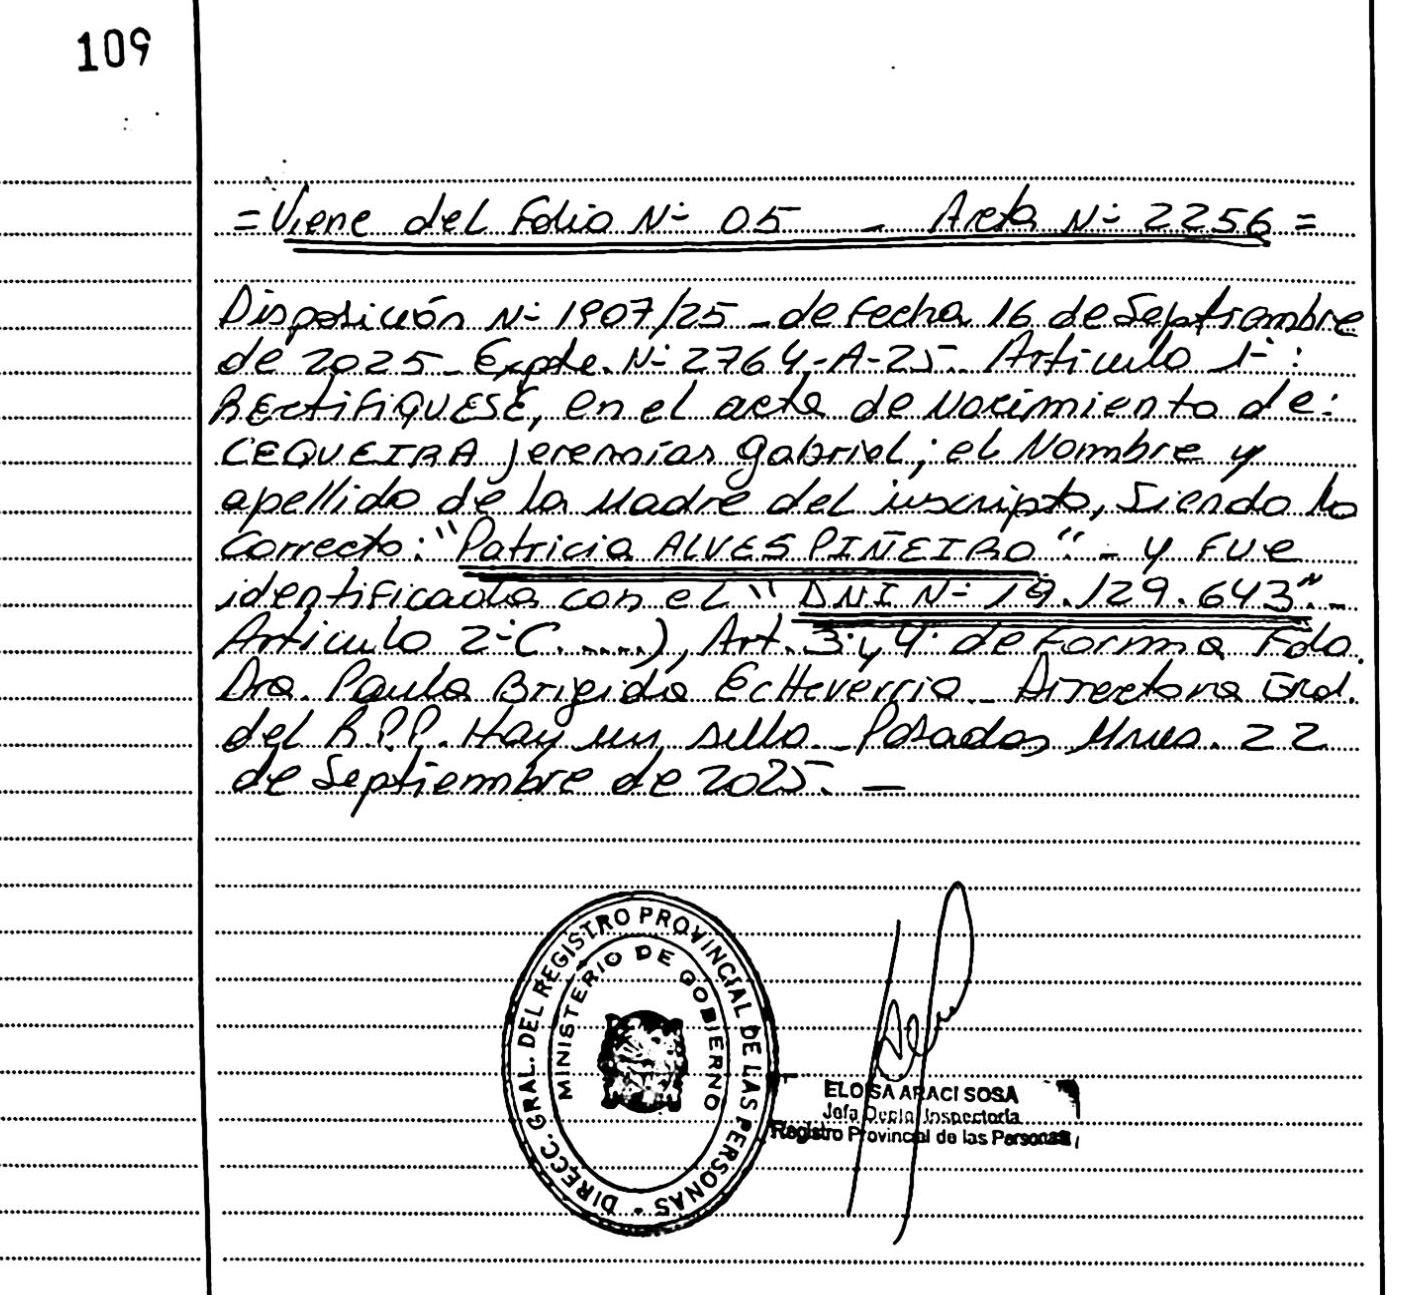 109
= Viene del Folio Nº 05 - Acta Nº 2256 =
Disposición Nº 1907/25 - de fecha 16 de Septiembre
de 2025 - Expte. Nº 2764-A-25. Artículo 1º:
RECTIFIQUESE, en el acta de Nacimiento de:
CEQUEIRA Jeremías Gabriel; el Nombre y
apellido de la Madre del inscripto, siendo lo
Correcto: "Patricia ALVES PIÑEIRO". - y fue
identificada con el "DNI Nº 19.129.643". -
Artículo 2º (.....), Art. 3º y 4º de Forma Fdo.
Dra. Paula Brigida Echeverria - Directora Gral.
del R.P.P. Hay un sello - Posadas Mnes. 22
de Septiembre de 2025. -
DIRECC. GRAL. DEL REGISTRO PROVINCIAL DE LAS PERSONAS
MINISTERIO DE GOBIERNO
ELOISA ARACI SOSA
Jefa Depto. Inspectoría
Registro Provincial de las Personas